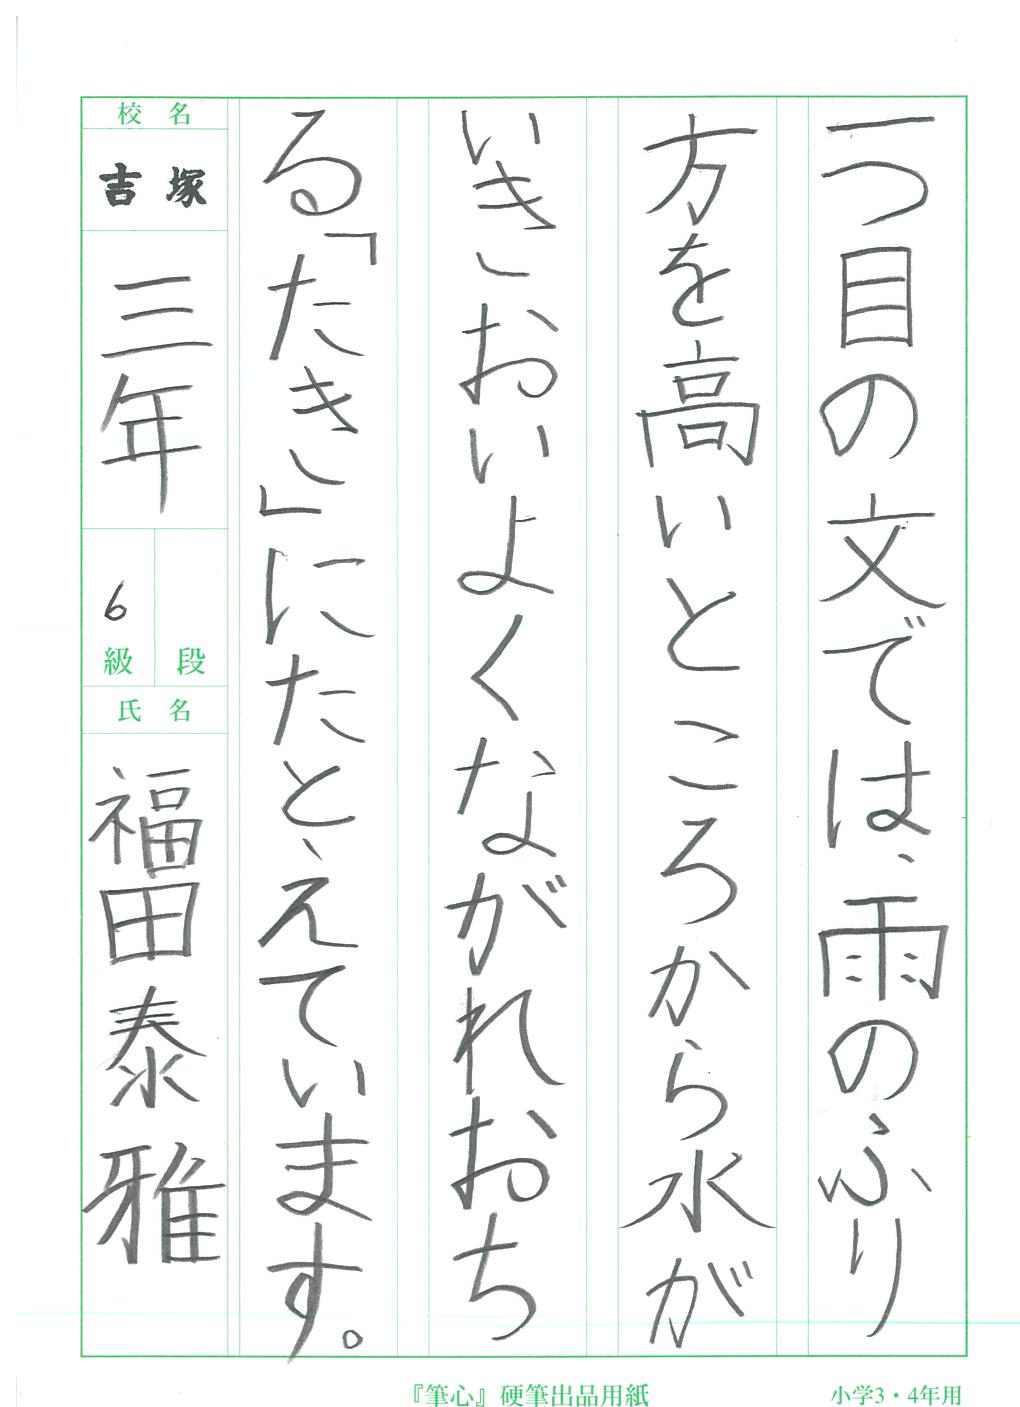 一つ目の文では、雨のふり
方を高いところから水が
いきおいよくながれおち
る「たき」にたとえています。
校名
吉塚
三年
6級
段
氏名
福田泰雅
『筆心』硬筆出品用紙
小学3・4年用